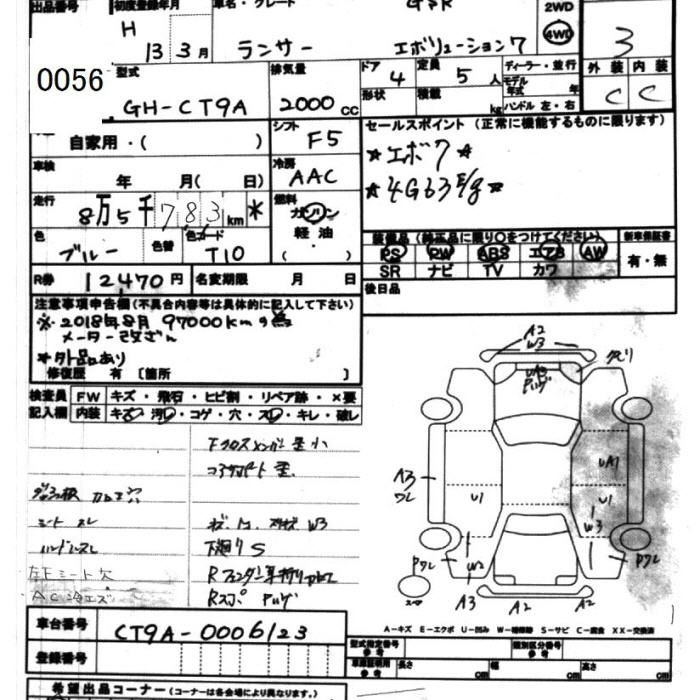 出品番号 初度登録年月 車名・グレード GSR 2WD 4WD 3
H 13 3月 ランサー エボリューション7
0056
型式 GH-CT9A 排気量 2000 cc
ドア 4 定員 5人 ディーラー・並行
形状 積載 kg モデル年式 年 ハンドル 左・右
外装 内装
C C
自家用・( ) シフト F5
車検 年 月( 日) 冷房 AAC
走行 8万5千783km * 燃料 ガソリン 軽油 ( )
色 ブルー 色替 色コード T10
セールスポイント (正常に機能するものに限ります)
★エボ7★
★4G63
装備品(純正品に限り○をつけてください) 新車保証書
PS PW ABS エアB AW 有・無
SR ナビ TV カワ
後日品
R券 12,470円 名変期限 月 日
注意事項申告欄(不具合内容等は具体的に記入して下さい)
※2018年8月 97000kmの為
メーター改ざん
*外品あり
修復歴 有 [箇所 ]
検査員 FW キズ・飛石・ヒビ割・リペア跡・×要
記入欄 内装 キズ・汚レ・コゲ・穴・スレ・キレ・破レ
Fクロスメンバー歪小
コアサポート歪
シートスレ
ハンドルスレ
下廻りS
左下シート欠
AC冷エズ
A2
W3
UA1
U1
U1
W3
A3
ワレ
W2
A3 A2 A2
A-キズ E-エクボ U-凹み W-補修跡 S-サビ C-腐食 XX-交換済
車台番号 CT9A-0006123
登録番号
型式指定番号 参考 類別区分番号 参考
車庫証明用 参考 長さ cm 幅 cm 高さ cm
希望出品コーナー (コーナーは各会場により異なります。)